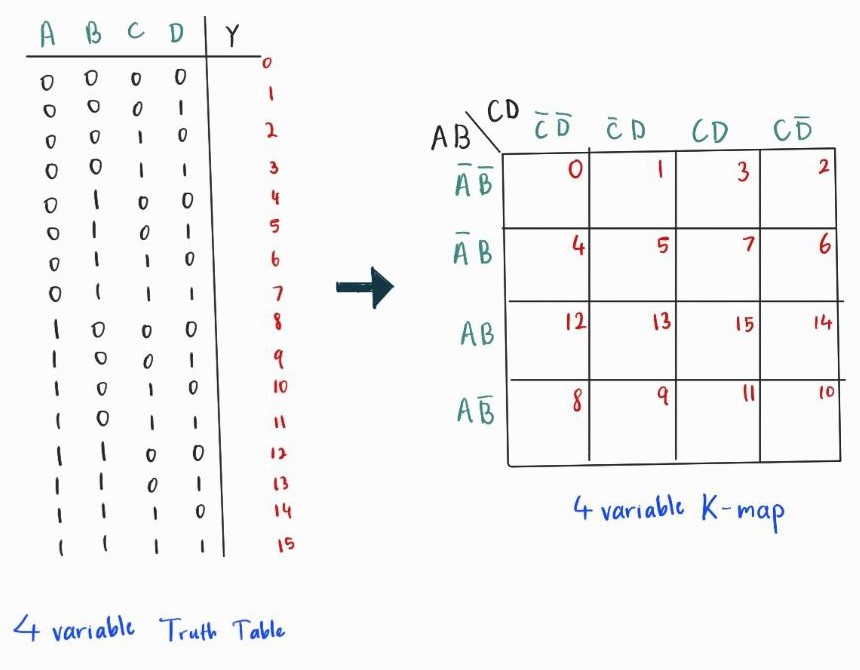 A B C D Y
0 0 0 0 0
0 0 0 1 1
0 0 1 0 2
0 0 1 1 3
0 1 0 0 4
0 1 0 1 5
0 1 1 0 6
0 1 1 1 7
1 0 0 0 8
1 0 0 1 9
1 0 1 0 10
1 0 1 1 11
1 1 0 0 12
1 1 0 1 13
1 1 1 0 14
1 1 1 1 15
4 variable Truth Table
CD
AB
C̅ D̅ C̅ D CD C D̅
A̅ B̅ 0 1 3 2
A̅ B 4 5 7 6
AB 12 13 15 14
A B̅ 8 9 11 10
4 variable K-map